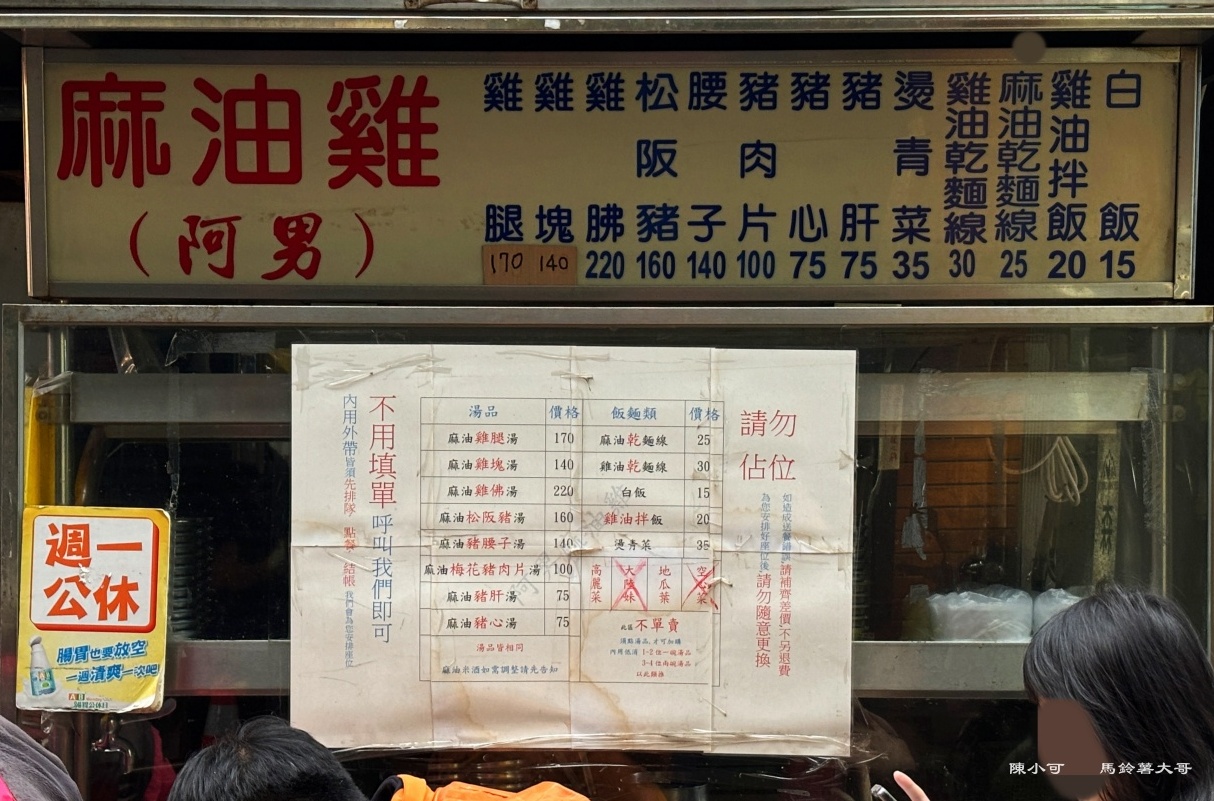 麻油雞
（阿男）
雞腿 170
雞塊 140
雞胇 220
松阪豬 160
腰子 140
豬肉片 100
豬心 75
豬肝 75
燙青菜 35
雞油乾麵線 30
麻油乾麵線 25
雞油拌飯 20
白飯 15
不用填單 呼叫我們即可
內用外帶皆須先排隊 點餐 結帳 我們會為您安排座位
湯品 價格 飯麵類 價格
麻油雞腿湯 170 麻油乾麵線 25
麻油雞塊湯 140 雞油乾麵線 30
麻油雞佛湯 220 白飯 15
麻油松阪豬湯 160 雞油拌飯 20
麻油豬腰子湯 140 燙青菜 35
麻油梅花豬肉片湯 100
麻油豬肝湯 75
麻油豬心湯 75
高麗菜
大陸妹
地瓜葉
空心菜
湯品皆相同
麻油米酒如需調整請先告知
此區不單賣
須點湯品,才可加購
內用低消 1-2位一碗湯品
3-4位兩碗湯品
以此類推
請勿
佔位
如造成送餐錯誤,請補齊差價,不另退費
為您安排好座位後,請勿隨意更換
週一
公休
腸胃也要放空
一週清爽一次吧
AB
陳小可 馬鈴薯大哥